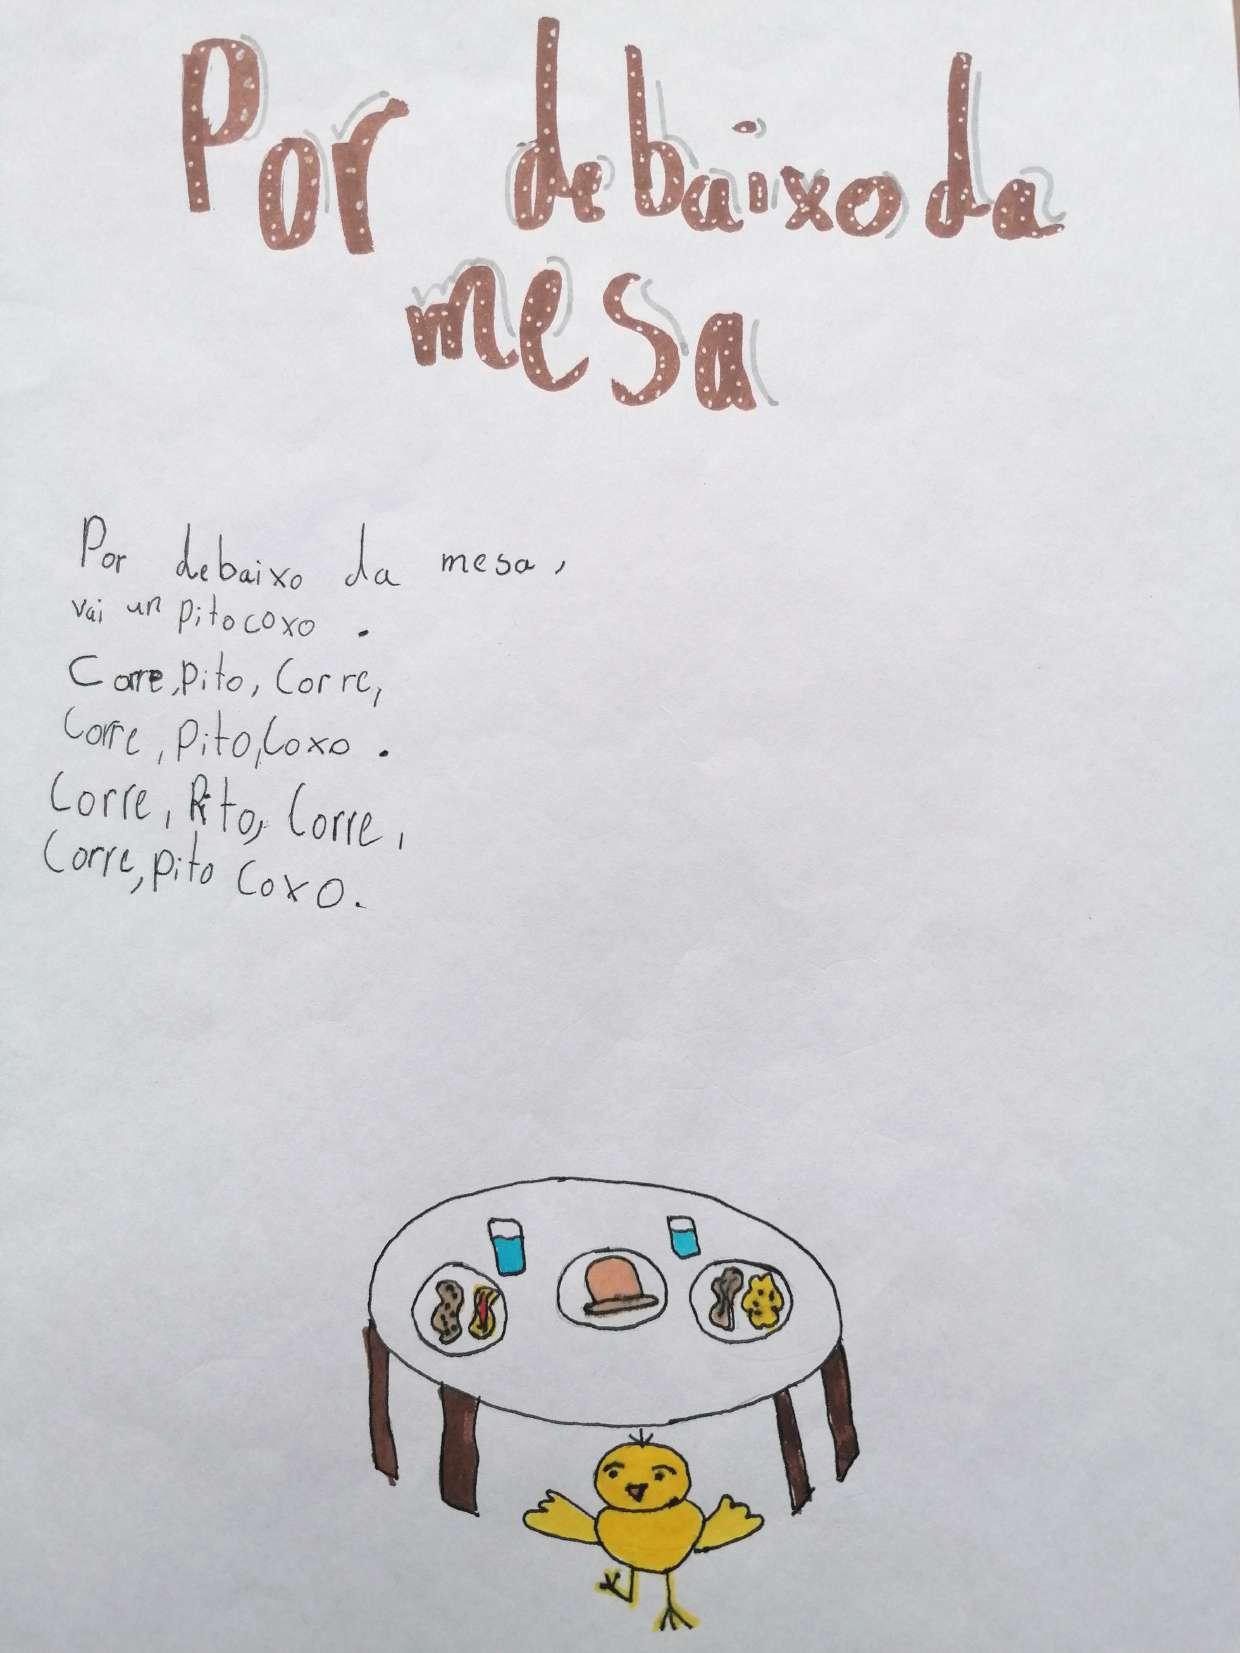 Por debaixo da
mesa
Por debaixo da mesa,
vai un pito coxo.
Corre, pito, Corre,
Corre, pito, Coxo.
Corre, Pito, Corre,
Corre, pito Coxo.